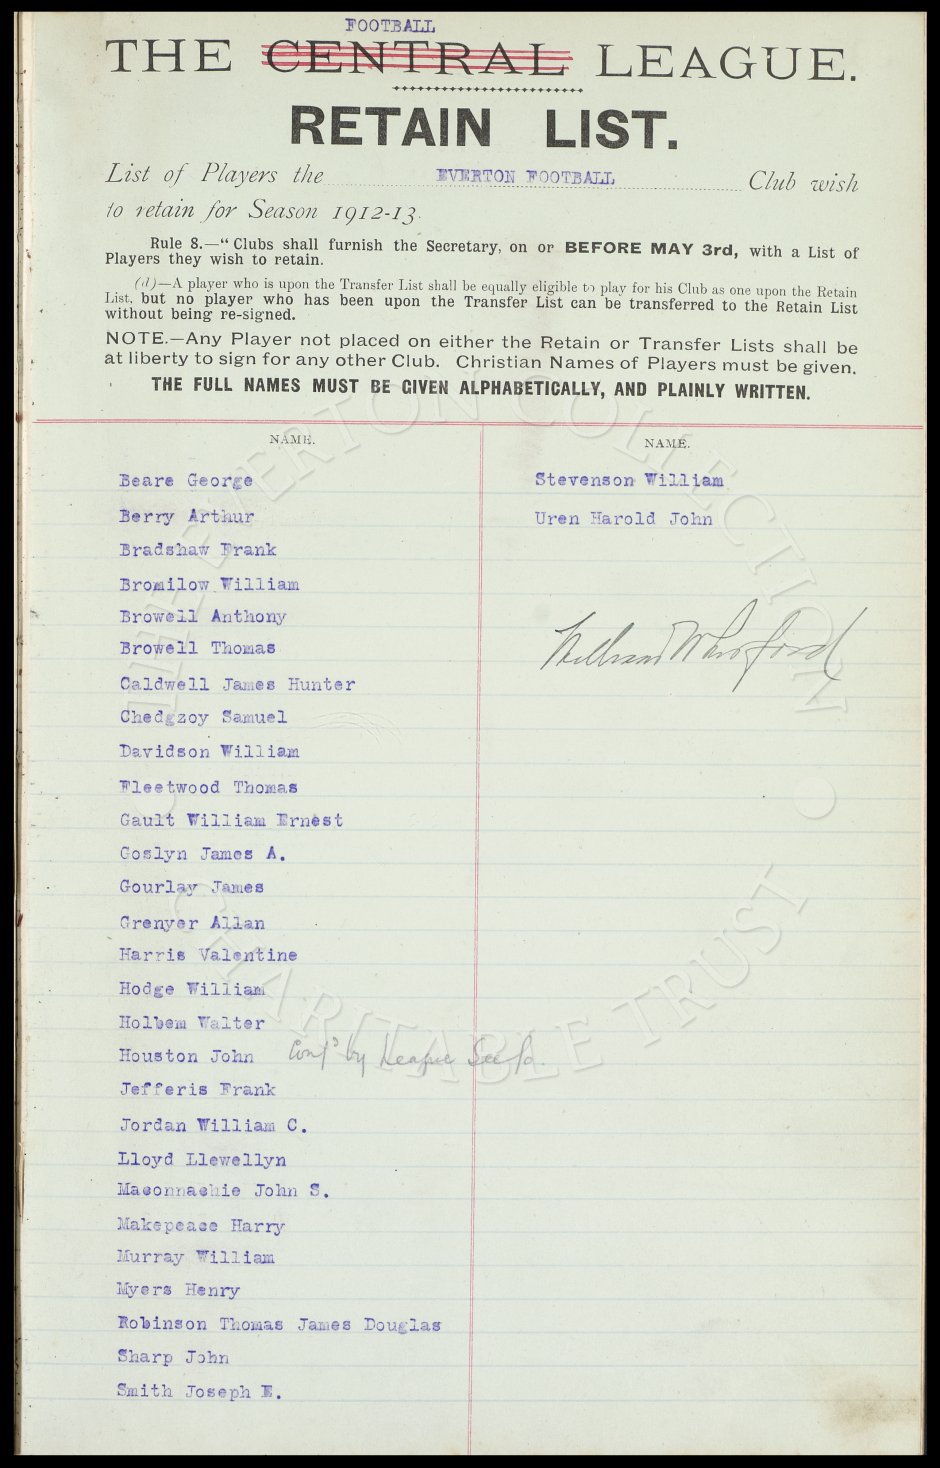 FOOTBALL
THE CENTRAL LEAGUE.
RETAIN LIST.
List of Players the EVERTON FOOTBALL Club wish
to retain for Season 1912-13.
Rule 8.—"Clubs shall furnish the Secretary, on or BEFORE MAY 3rd, with a List of
Players they wish to retain.
(d)—A player who is upon the Transfer List shall be equally eligible to play for his Club as one upon the Retain
List, but no player who has been upon the Transfer List can be transferred to the Retain List
without being re-signed.
NOTE.—Any Player not placed on either the Retain or Transfer Lists shall be
at liberty to sign for any other Club. Christian Names of Players must be given.
THE FULL NAMES MUST BE GIVEN ALPHABETICALLY, AND PLAINLY WRITTEN.
NAME.
Beare George
Berry Arthur
Bradshaw Frank
Bromilow William
Browell Anthony
Browell Thomas
Caldwell James Hunter
Chedgzoy Samuel
Davidson William
Fleetwood Thomas
Gault William Ernest
Goslyn James A.
Gourlay James
Grenyer Allan
Harris Valentine
Hodge William
Holbem Walter
Houston John by League
Jefferis Frank
Jordan William C.
Lloyd Llewellyn
Maconnachie John S.
Makepeace Harry
Murray William
Myers Henry
Robinson Thomas James Douglas
Sharp John
Smith Joseph E.
NAME.
Stevenson William
Uren Harold John
William
THE EVERTON COLLECTION
CHARITABLE TRUST